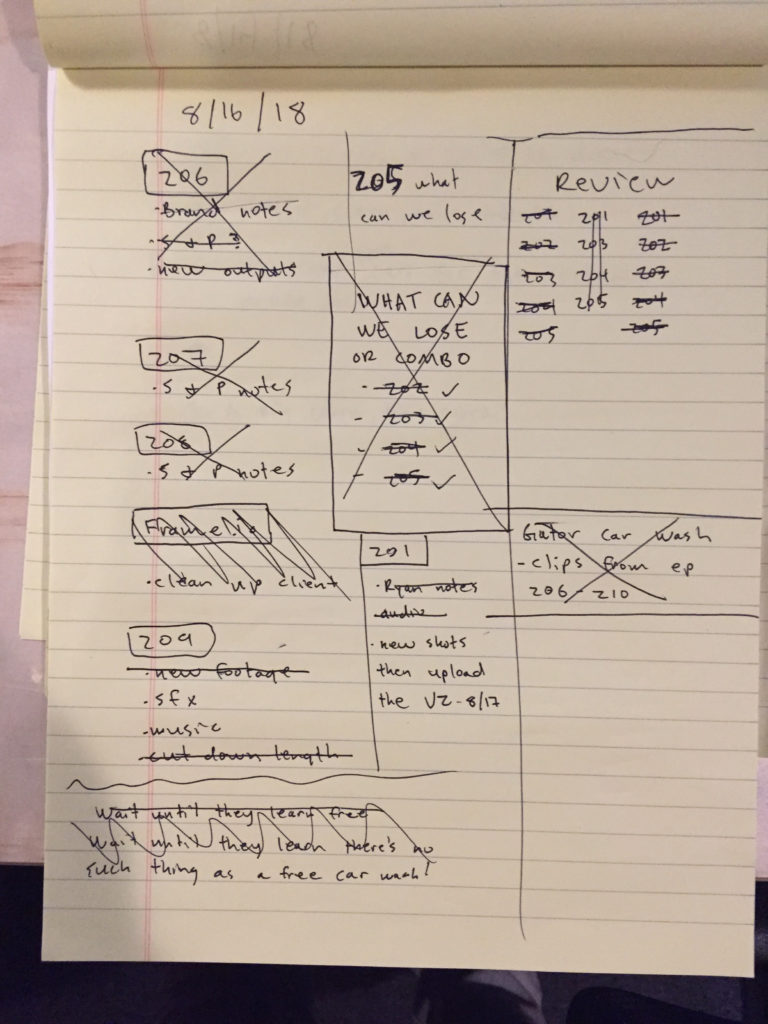 8/16/18
206
·Brand notes
·S & P ?
·new outputs
207
·S & P notes
208
·S & P notes
·clean up client
209
·new footage
·sfx
·music
·cut down length
205 what
can we lose
WHAT CAN
WE LOSE
OR COMBO
- 202 ✓
- 203 ✓
- 204 ✓
- 205 ✓
201
·Ryan notes
audio
·new shots
then upload
the V2-8/17
Review
201 201 201
202 203 202
203 204 203
204 205 204
205 205
Gator car wash
-clips from ep
206-210
Wait until they learn free
Wait until they learn there's no
such thing as a free car wash!